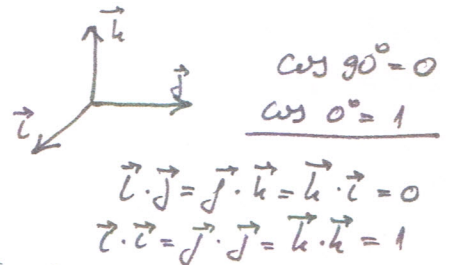 k⃗
j⃗
i⃗
cos 90° = 0
cos 0° = 1
i⃗ · j⃗ = j⃗ · k⃗ = k⃗ · i⃗ = 0
i⃗ · i⃗ = j⃗ · j⃗ = k⃗ · k⃗ = 1